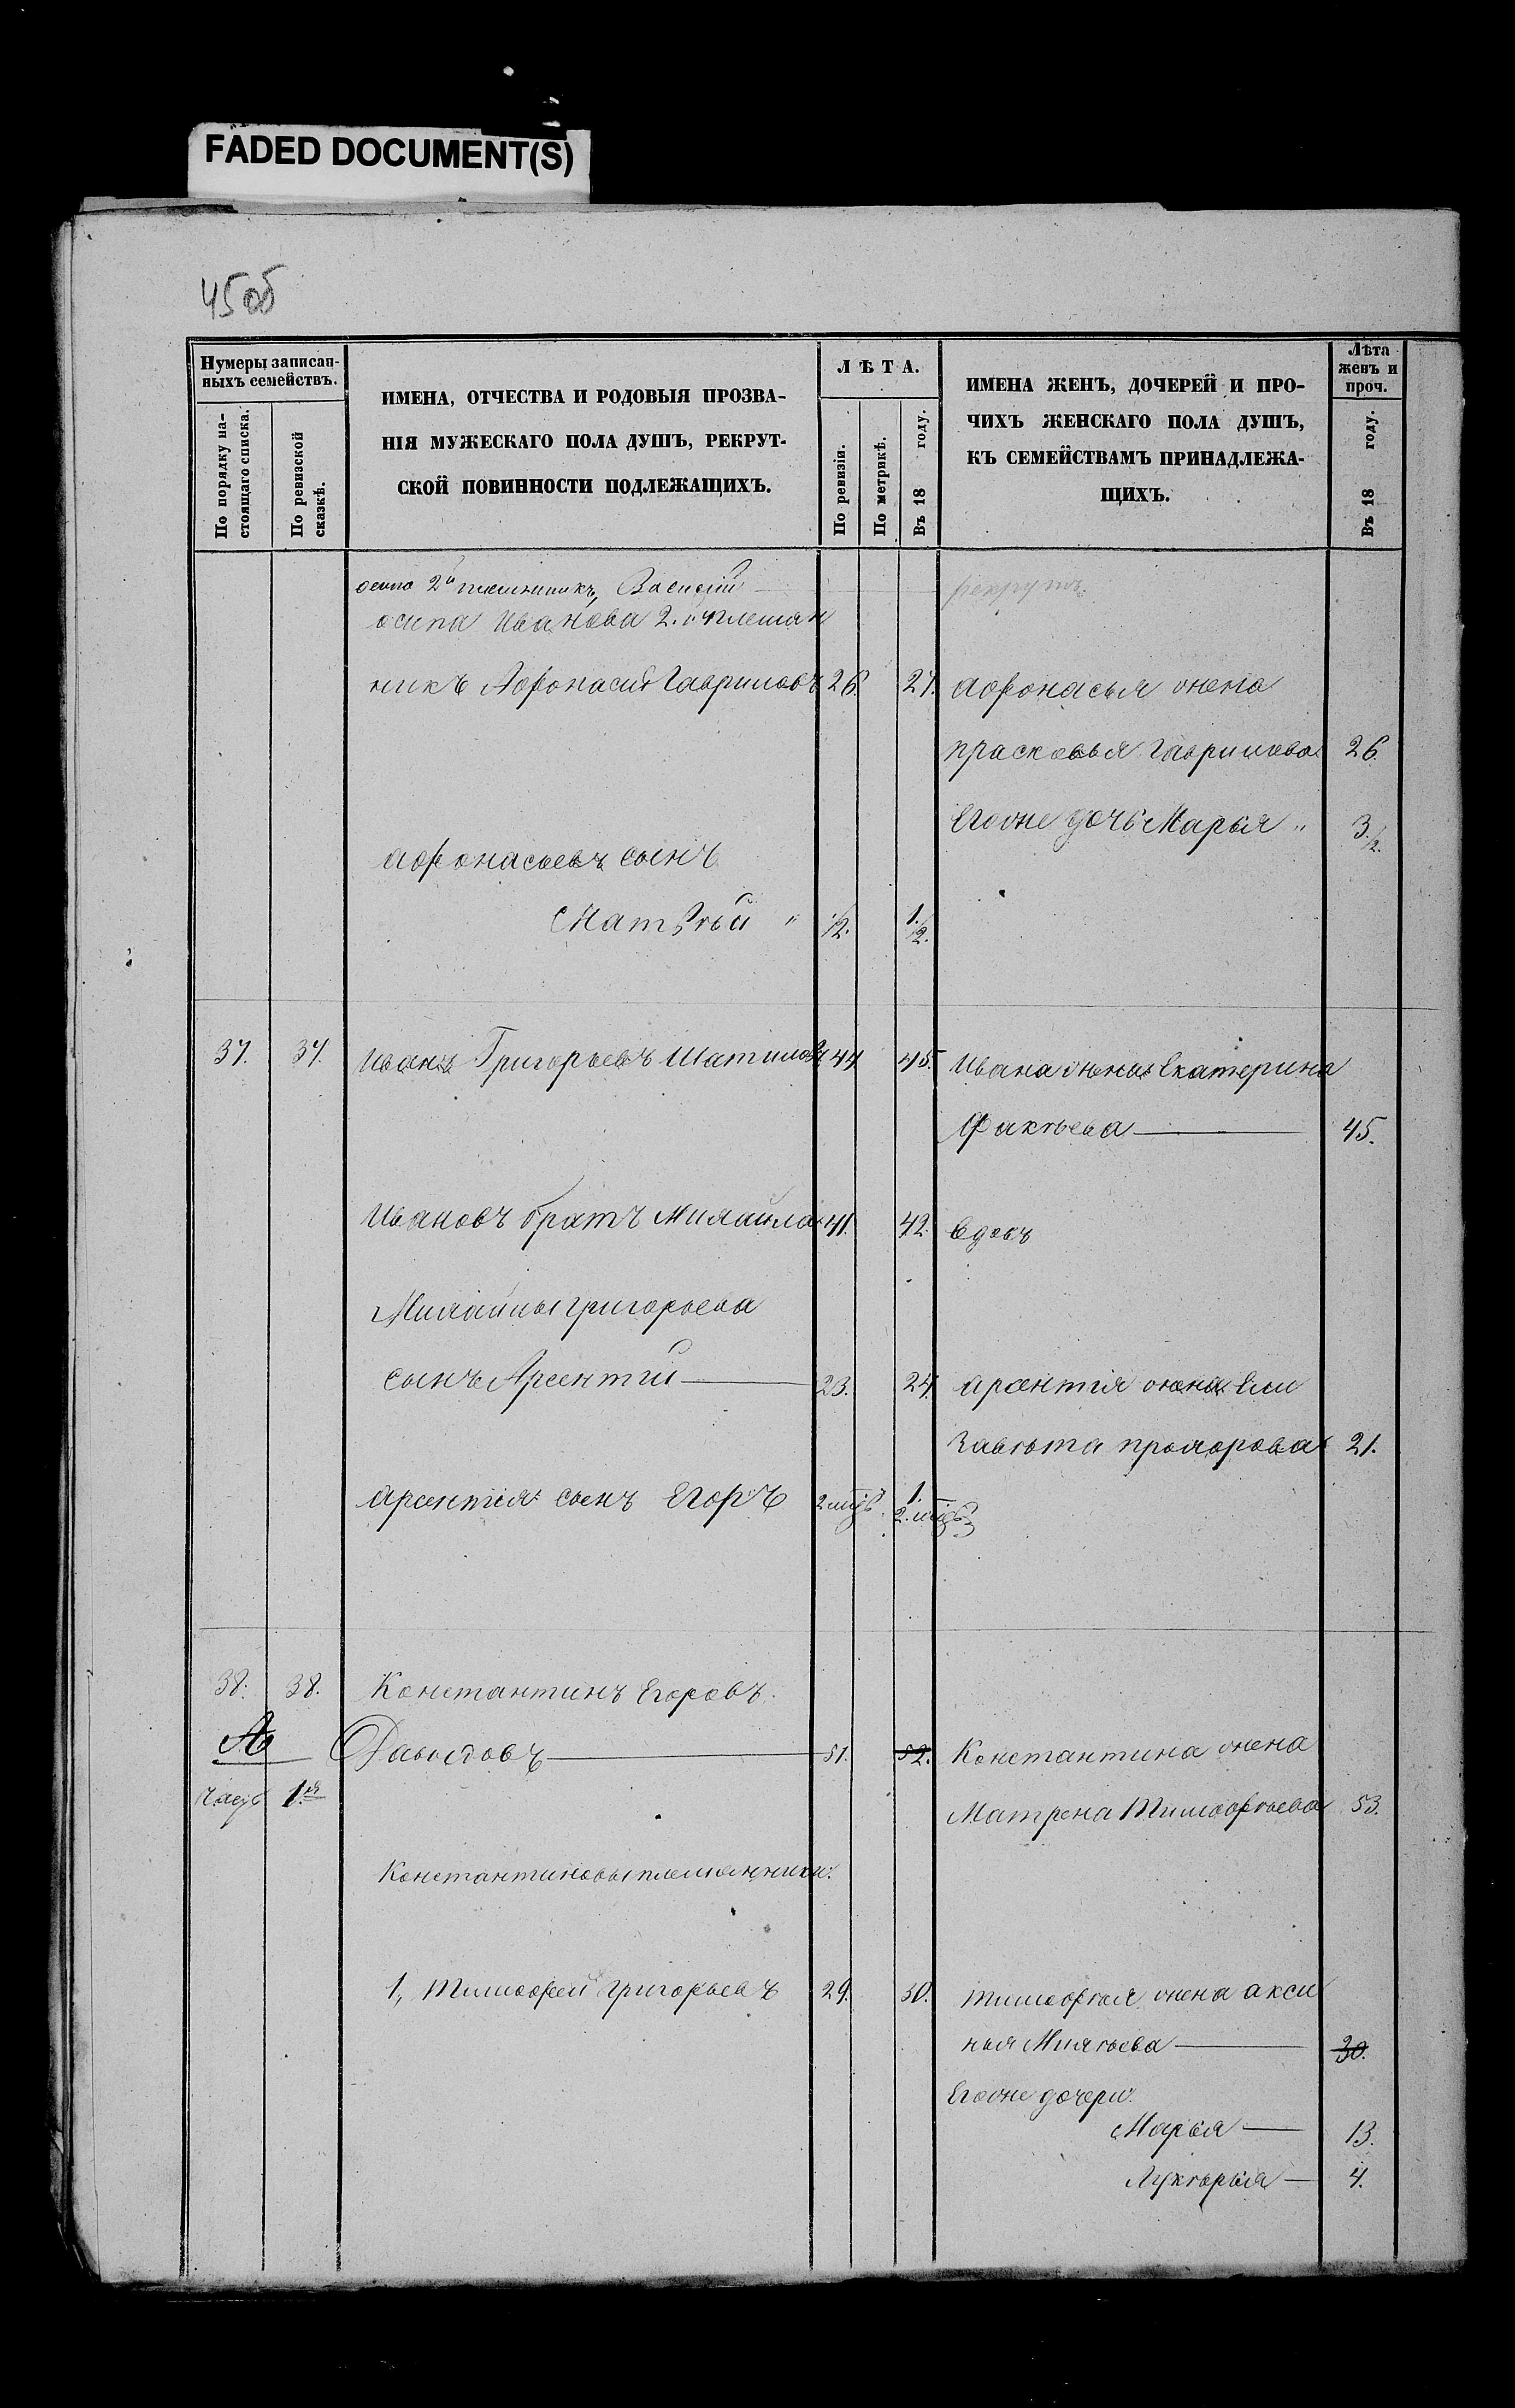 FADED DOCUMENT(S)
45об
Нумеры записан-
ныхъ семействъ.
По порядку на-
стоящаго списка.
По ревизской
сказкѣ.
ИМЕНА, ОТЧЕСТВА И РОДОВЫЯ ПРОЗВА-
НІЯ МУЖЕСКАГО ПОЛА ДУШЪ, РЕКРУТ-
СКОЙ ПОВИННОСТИ ПОДЛЕЖАЩИХЪ.
ЛѢТА.
По ревизіи.
По метрикѣ.
Въ 18 году.
ИМЕНА ЖЕНЪ, ДОЧЕРЕЙ И ПРО-
ЧИХЪ ЖЕНСКАГО ПОЛА ДУШЪ,
КЪ СЕМЕЙСТВАМЪ ПРИНАДЛЕЖА-
ЩИХЪ.
Лѣта
женъ и
проч.
Въ 18 году.
2й Василій рекрутъ
осипа Иванова 2.й племян
никъ Афонасий Гавриловъ 26. 27. афонасья жена
прасковья Гаврилова 26.
Егоже дочь Марья " 3./2.
афонасьевъ сынъ
Матвѣй " /2. 1./2.
37. 37. Иванъ Григорьевъ Шатиловъ 44 45. Ивана жена Екатерина
Фактѣева 45.
Ивановъ братъ Михайла 41. 42. вдовъ
Михайлы григорьева
сынъ Арсентий 23. 24. арсентія жена Ели
завѣта прохорова 21.
арсентія сынъ Егоръ 2 1. 2.
38. 38. Константинъ Егоровъ.
Давыдовъ 51. 52. Константина жена
Часть 1.я Матрена Тимофѣева 53.
Константиновы племянники:
1, Тимофей григорьевъ 29. 30. тимофѣя жена акси
нья Михѣева 30.
Егоже дочери.
Марья 13.
Лукѣрья 4.